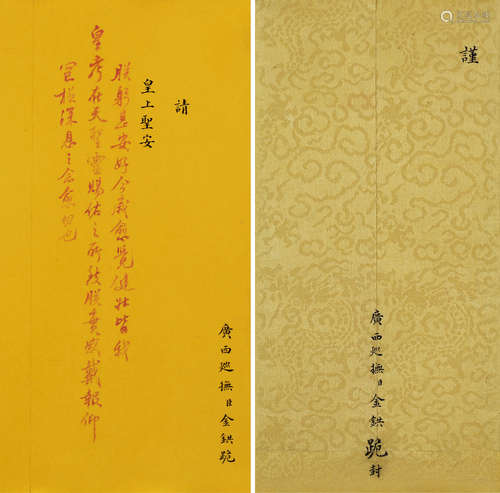 廣西廵撫臣金鉷跪
請
皇上聖安
朕躬甚安好今歲愈覺健壯皆我
皇考在天聖靈賜佑之所致朕實感戴報仰
深 之念愈 也
謹
廣西廵撫臣金鉷跪封